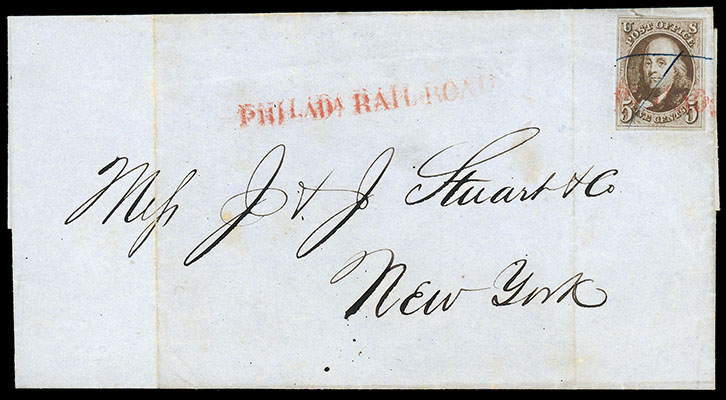 U S
POST OFFICE
5 FIVE CENTS 5
PHILADA RAILROAD
Mess J & J Stuart & Co
New York